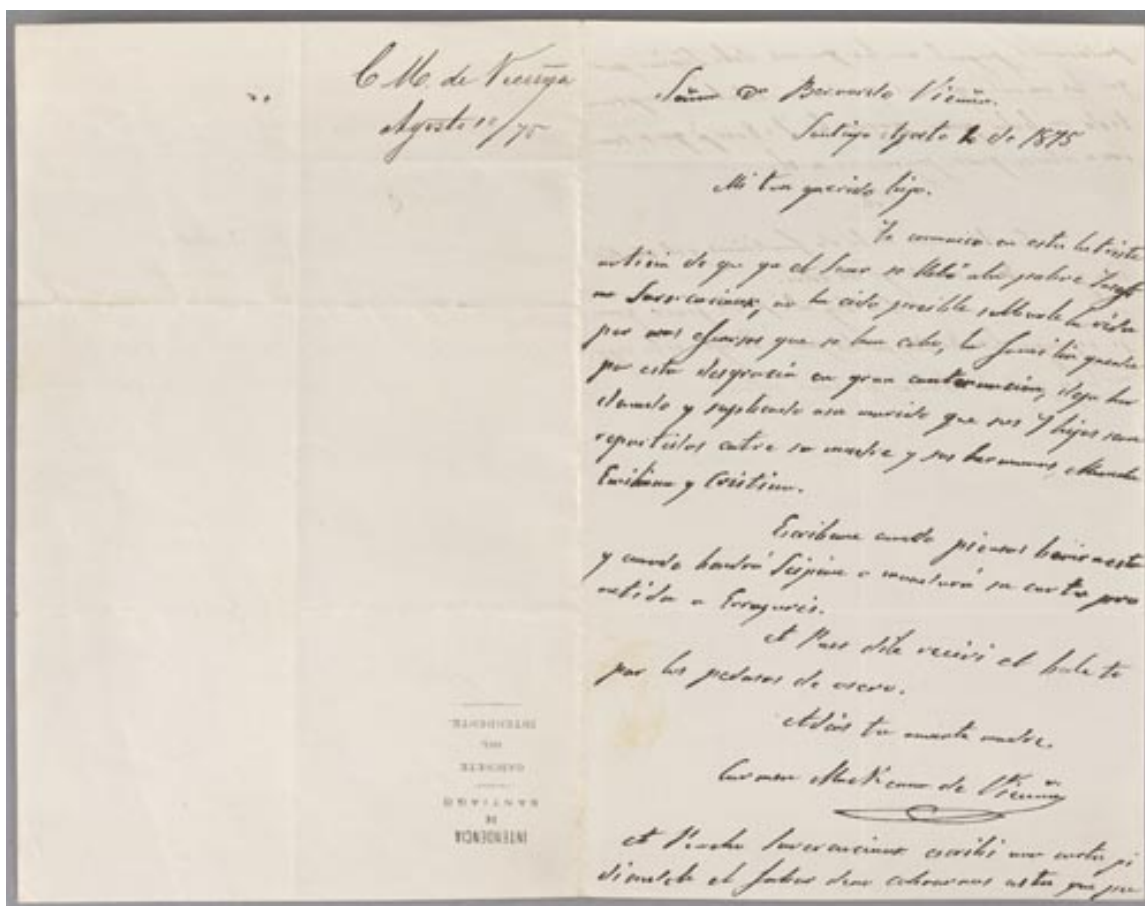 C M. de Vicuña
Agosto 10/75
INTENDENCIA
DE
SANTIAGO
GABINETE
DEL
INTENDENTE.
Señor Dn Bernardo Vicuña.
Santiago Agosto 2 de 1875
Mi tan querido hijo.
Te comunico en esta la triste
noticia de que ya el Señor se llebó a la pobre
no ha cido posible salbarle la vida
por mas esfuersos que se han echo, la familia queda
por esta desgracia en gran consternacion, deja
y suplicado a su marido que sus 7 hijos sean
repartidos entre su madre y sus hermanas Manuela
Emiliana y Cristina.
Escribeme cuando piensas benir a esta
y cuando bendrá o mandará su carta pro
metida a Errazuris.
A dile recivi el bale to
por los pedasos de asero.
Adios tu amante madre.
Carmen MacKenna de Vicuña
A escribi una carta pi
diendole el fabor de cobrarnos esta que